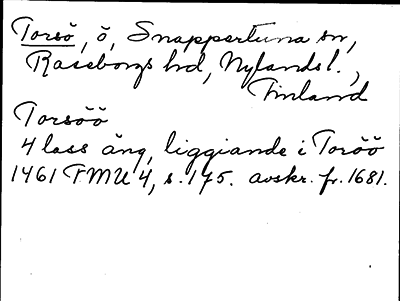 Torsö, ö, Snappertuna sn,
Raseborgs hd, Nylands l.,
Finland
Torsöö
4 lass äng, liggiande i Toröö
1461 FMU 4, s. 175. avskr. fr. 1681.